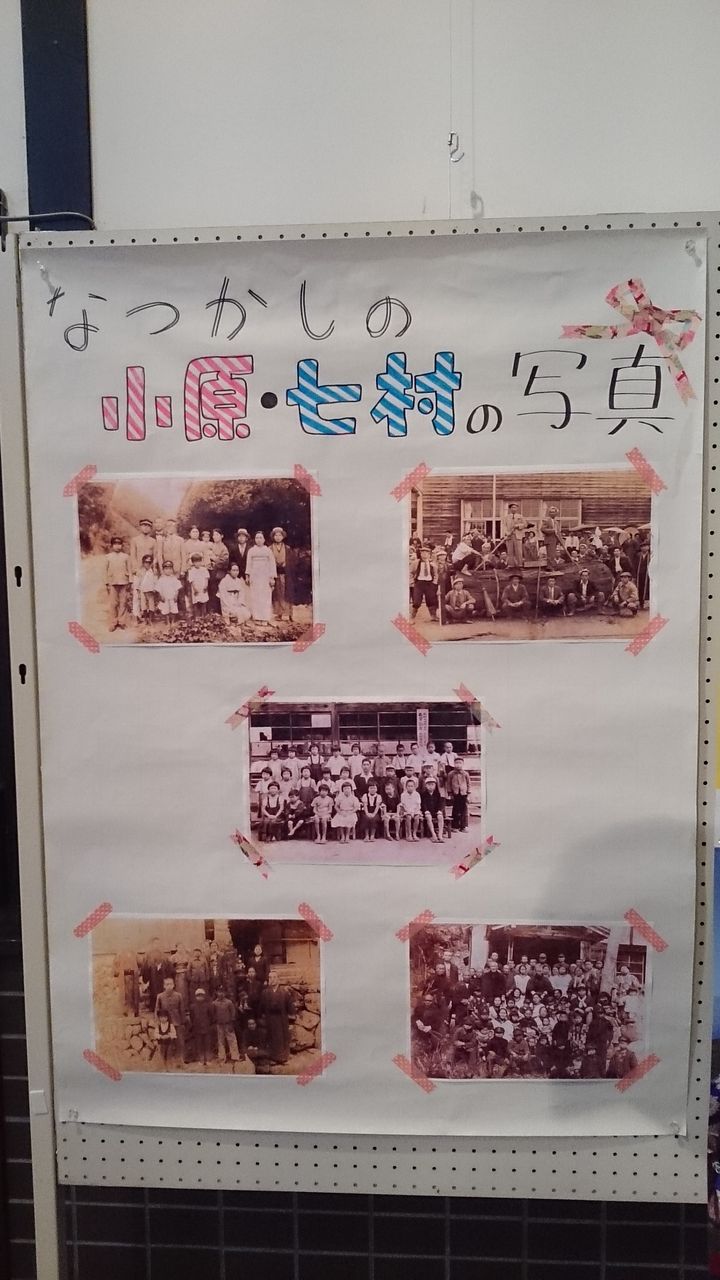 なつかしの
小原・七村の写真